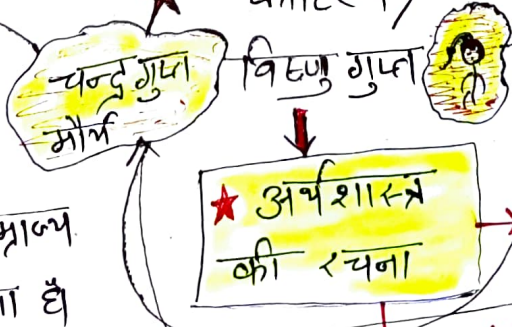 चन्द्रगुप्त
मौर्य
विष्णु गुप्त
अर्थशास्त्र
की रचना